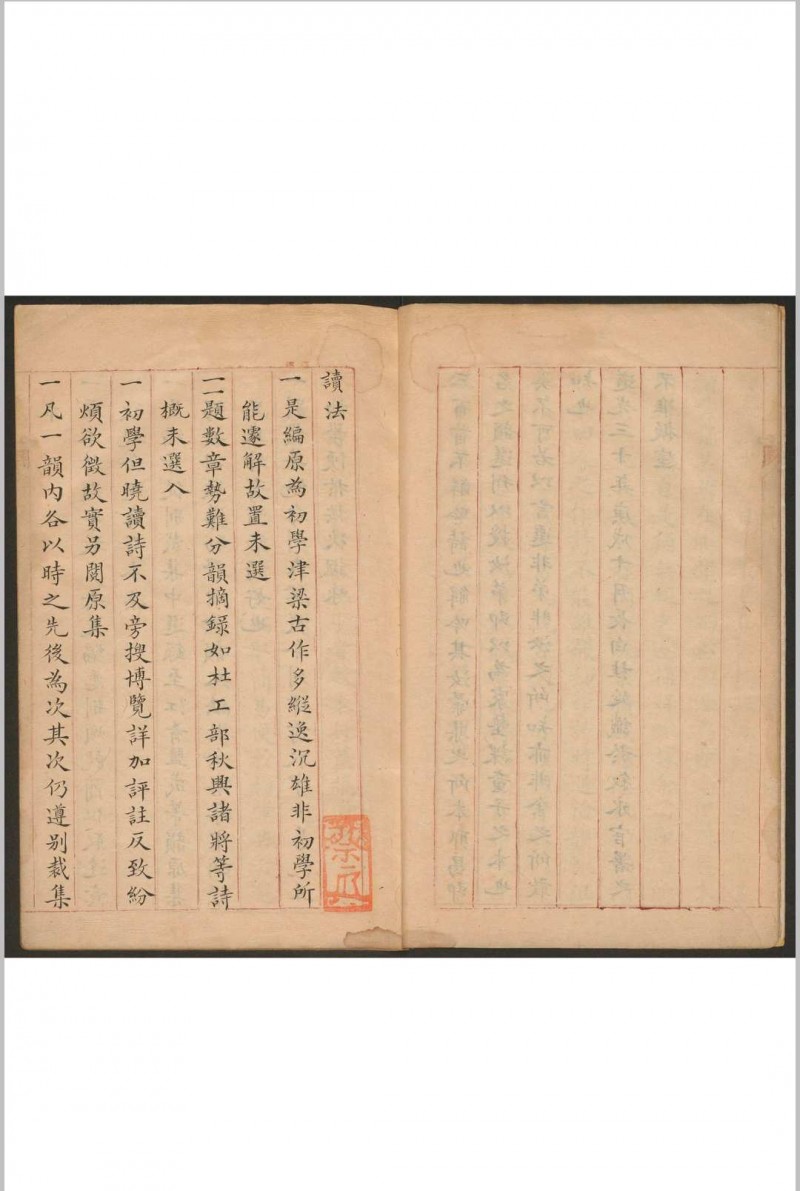 讀法
一是編原為初學津梁古作多縱逸沉雄非初學所
能遽解故置未選
一一題數章勢難分韻摘錄如杜工部秋興諸將等詩
概未選入
一初學但曉讀詩不及旁搜博覽詳加評註反致紛
煩欲徵故實另閱原集
一凡一韻內各以時之先後為次其次仍遵別裁集